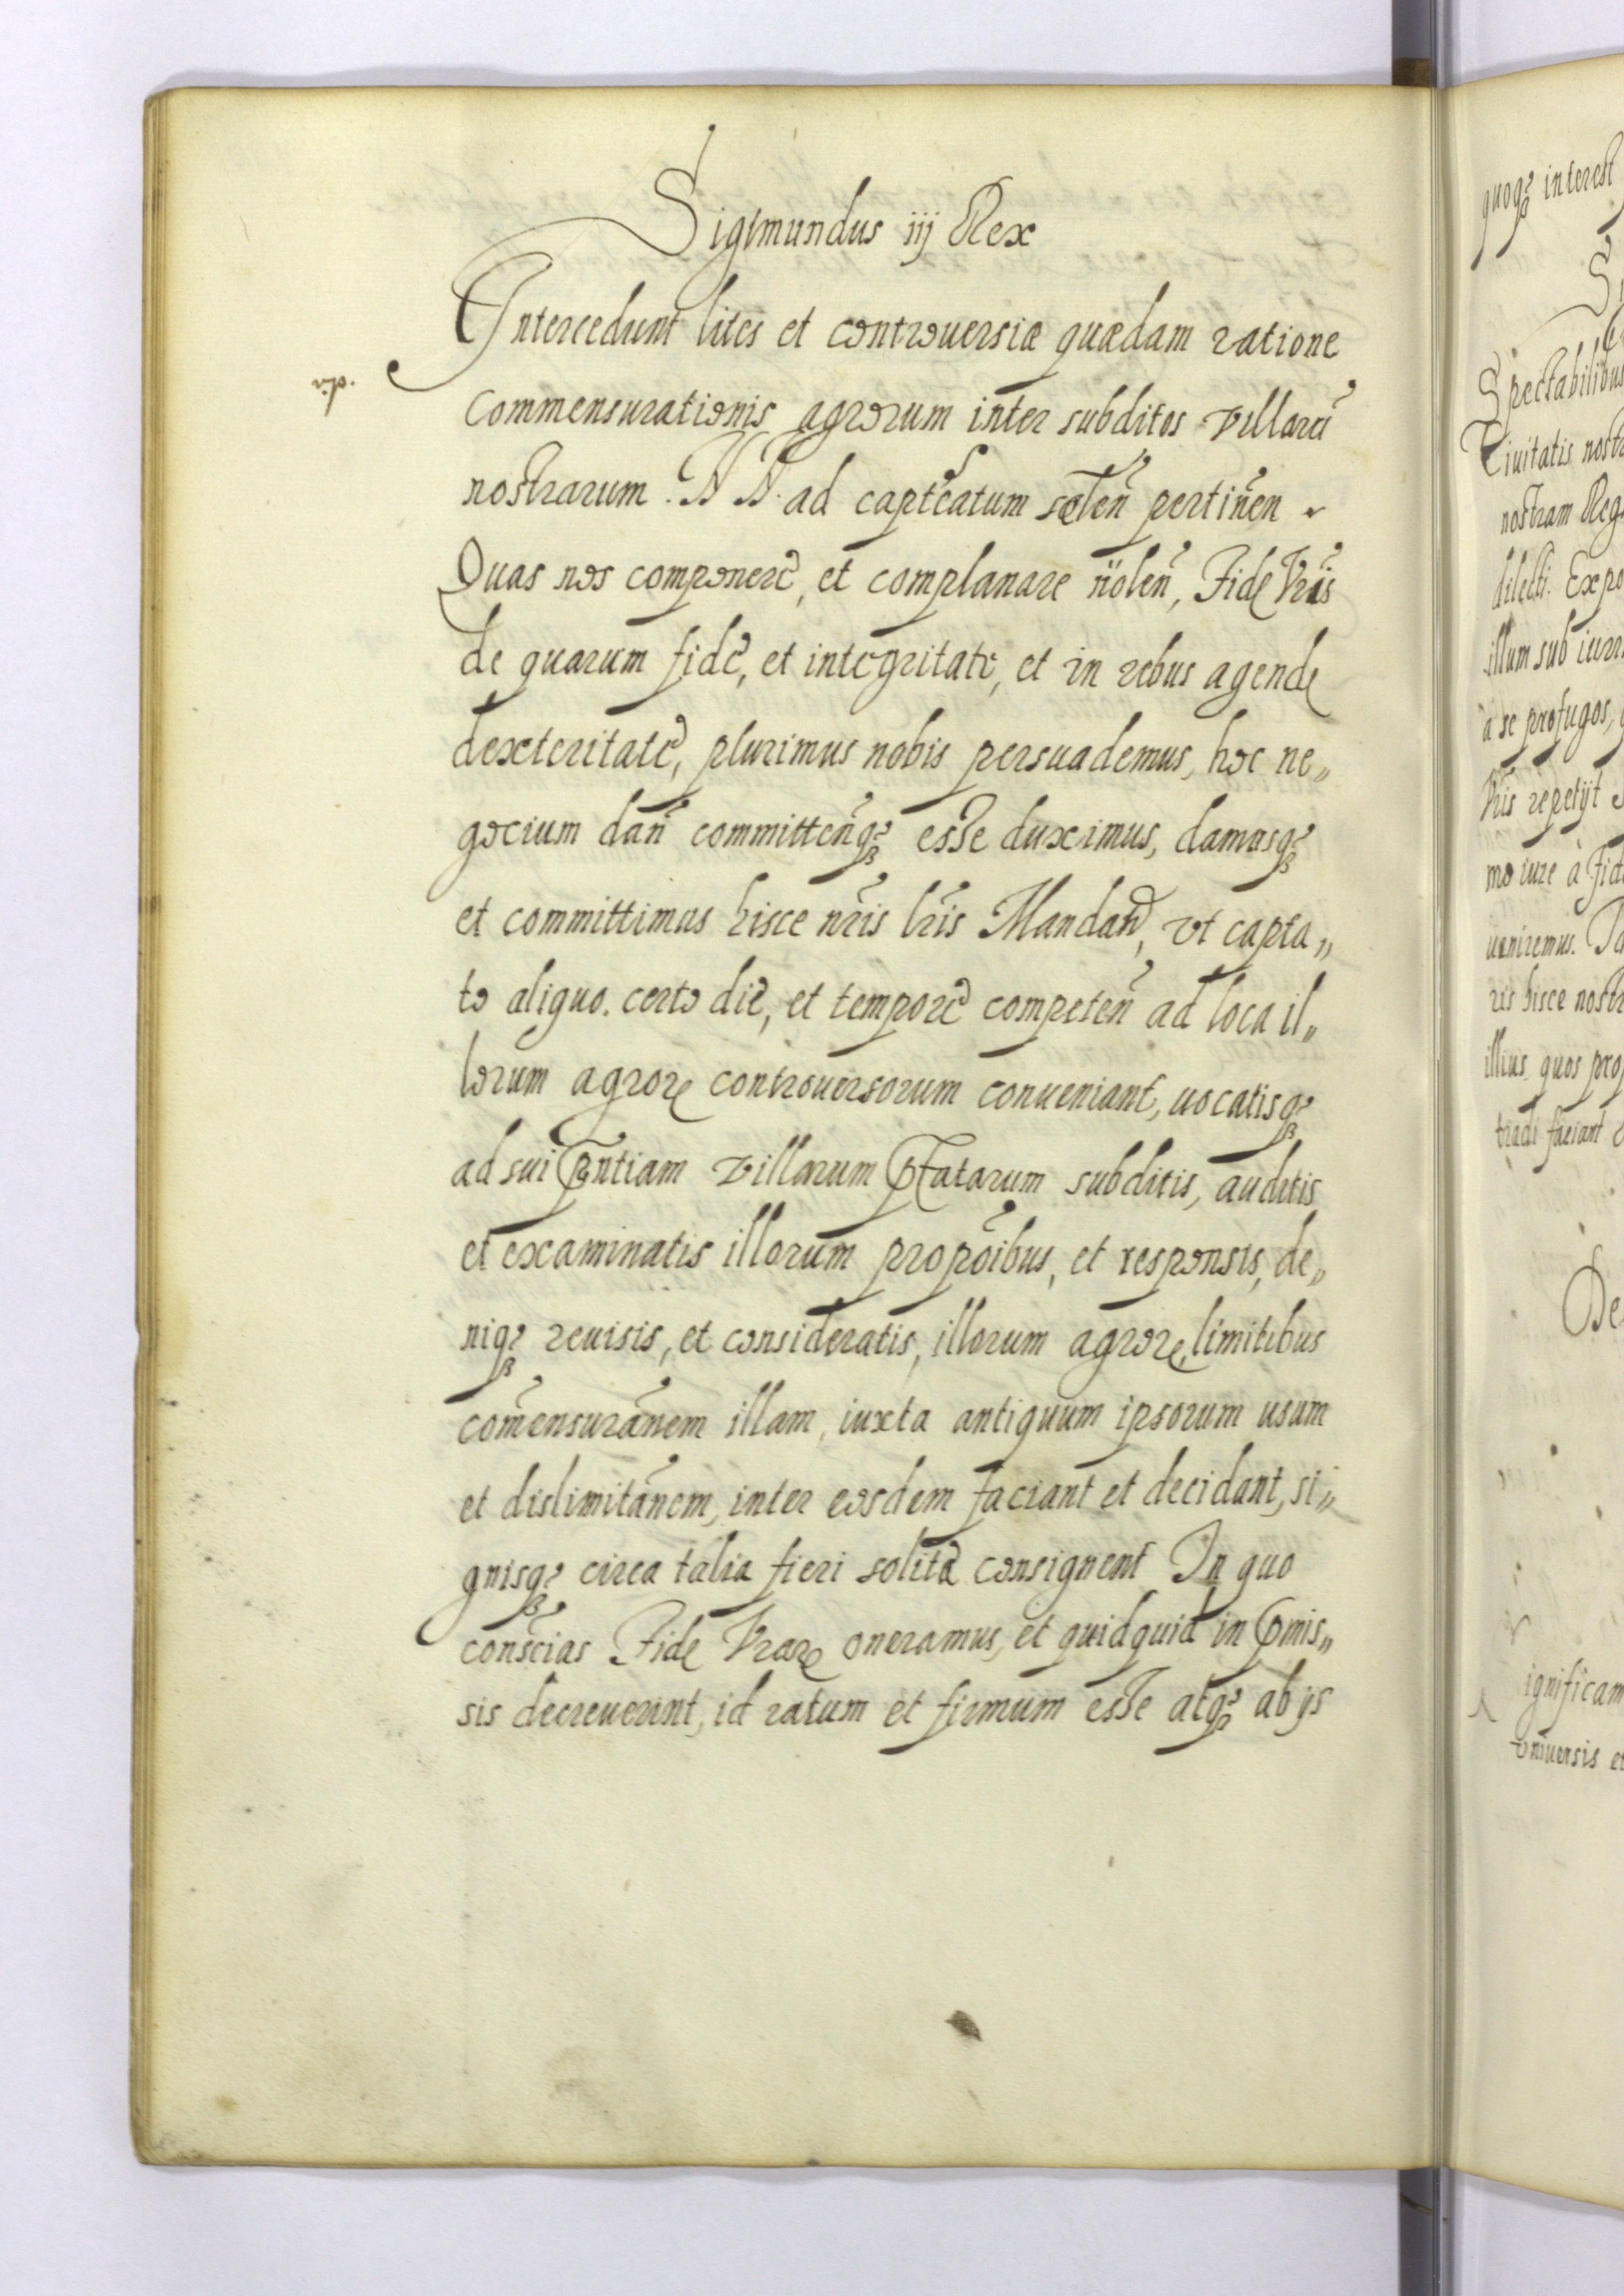 Sigismundus iij Rex
Intercedunt lites et controuersiæ quædam ratione
Commensurationis agrorum inter subditos villarū
nostrarum. N N. ad capteatum pertinēn
Quas nos componere, et complanare nolēn, Fide Vr̄is
de quarum fide, et integritate, et in rebus agende
dexteritate, plurimus nobis persuademus, hoc ne„
gocium dān committēnq₃ esse duximus, damusq₃
et committimus hisce nr̄is lr̄is Mandan̄, vt capta„
to aliquo. certo die, et tempore competēn ad loca il„
lorum agrorꝝ controuersorum conueniant, uocatisq₃
ad sui p̄ntiam villarum p̄fatarum subditis, auditis
et examinatis illorum propōibus, et responsis, de„
niq₃ reuisis, et consideratis, illorum agrorꝝ limitibus
com̄ensurānem illam, iuxta antiquum ipsorum usum
et dislimitānem, inter eosdem faciant et decidant, si„
gnisq₃ circa talia fieri solita consignent In quo
conscias Fide Vrarꝝ oneramus, et quidquid in p̄mis„
sis decreuerint, id ratum et firmum esse atq₃ ab ijs
quoq₃ interest
Spectabilibus
Ciuitatis nostr
nostram Reg
dilecti. Expo
illum sub iurr
a se profugos,
Vr̄is repetijt
mo iure à Fid
ueniremus.
ris hisce nostr
illius quos pro
tradi faciant
De
ignificam
vniuersis et